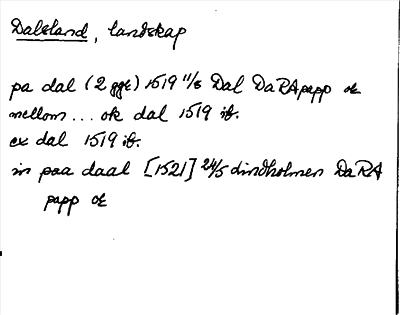 Dalsland, landskap
pa dal (2 ggr) 1519 11/8 Dal DaRA papp ok
mellom... ok dal 1519 ib.
ex dal 1519 ib.
in paa daal [1521] 24/5 dindholmen DaRA
papp ok